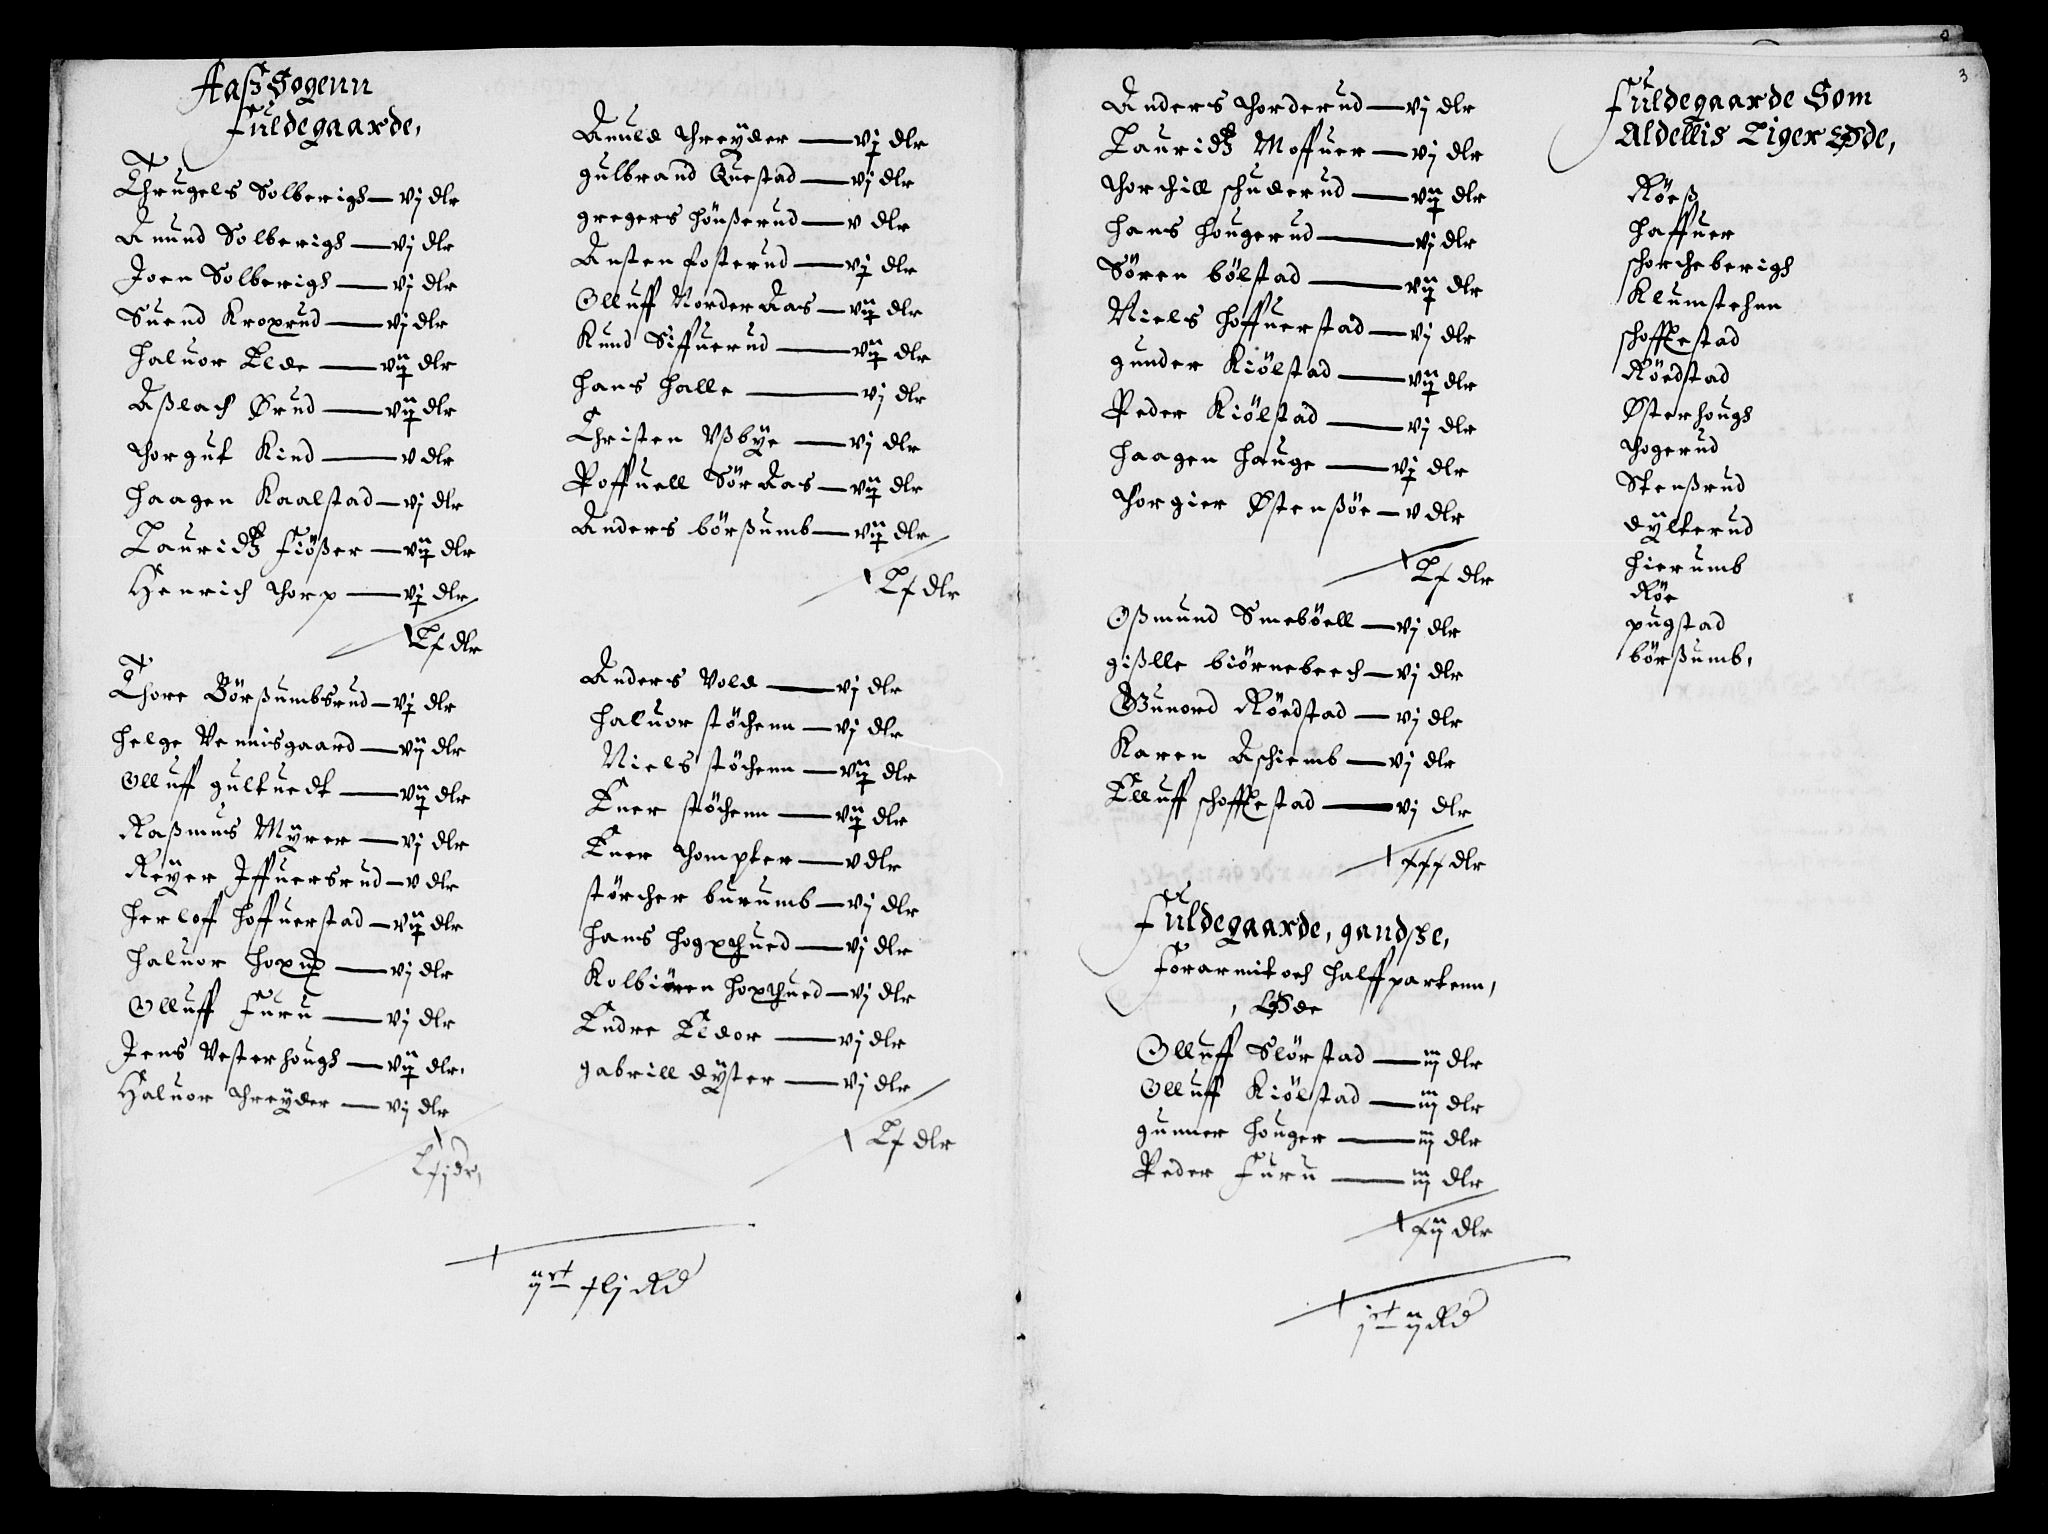 Aasz Sogenn
Fuldegaarde,
Thrugels Solberigh — vj dlr
Anund Solberigh — vj dlr
Joen Solberigh — vj dlr
Suend Kroxrud — vj dlr
Haluor Elde — vij dlr
Aszlach Ørud — vij dlr
Thorgut Kind — v dlr
Haagen Kaalstad — vj dlr
Lauridtz Fiöszer — vij dlr
Henrich Thorp — vj dlr
Lx dlr
Thore Börszumbsrud — vj dlr
Helge Vennisgaard — vij dlr
Olluff Gultuedt — vij dlr
Raszmus Myrer — vj dlr
Reyer Iffuersrud — v dlr
Herloff Hoffuerstad — vij dlr
Haluor Hoxud — vj dlr
Olluff Furu — vj dlr
Jens Vesterhough — vij dlr,
Haluor Threyder — vj dlr
Lxj dr,
Anuld Threyder — vj dlr
Gulbrand Questad — vj dlr
Gregers Hönszerud — v dlr
Austen Fosterud — vj dlr
Olluff Norder Aas — vij dlr
Knud Siffuerud — vij dlr
Hans Halle — vj dlr
Christen Vszbye — vj dlr
Poffuell Sör Aas — vij dlr
Anders Börszumb — vij dlr
Lx dlr
Anders Vold — vj dlr
Haluor Stöchenn — vj dlr
Niels Stöchenn — vij dlr
Euer Stöchenn — vij dlr
Euer Thompter — v dlr
Störcher Burumb — vj dlr
Hans Hogxthued — vj dlr
Kolbiören Hoxthued — vj dlr
Endre Eldor — vj dlr
Gabrill Dyster — vj dlr
Lx dlr
ij ct xlj Rd
3
Anders Thorderud — vj dlr
Lauridtz Moffuer — vj dlr
Thorchill Schuderud — vij dlr
Hans Hougerud — vj dlr
Sören Bölstad — vij dlr
Niels Hoffuerstad — vj dlr
Gunder Kiölstad — vij dlr
Peder Kiölstad — vj dlr
Haagen Hauge — vj dlr
Thorgier Østenszöe — v dlr
Lx dlr
Oszmund Smeböell — vj dlr
Giszlle Biörnebeech — vj dlr
Gunord Röedstad — vj dlr
Karen Aschiemb — vj dlr
Elluff Schofflestad — vj dlr
xxx dlr
Fuldegaarde, gandsze,
Forarmit och Halffparten,
, Øde
Olluff Slörstad — iij dlr
Olluff Kiölstad — iij dlr
Gunner Houger — iij dlr
Peder Furu — iij dlr
xij dlr
j ct ij Rd
Fuldegaarde Som
Aldellis Liger Øde,
Röesz
Haffuer
Schorcheberigh
Klumstehnn
Schofflestad
Röedstad
Østerhough
Thogerud
Stenszrud
Dylterud
Hierumb
Röe
Pugstad
Börszumb,